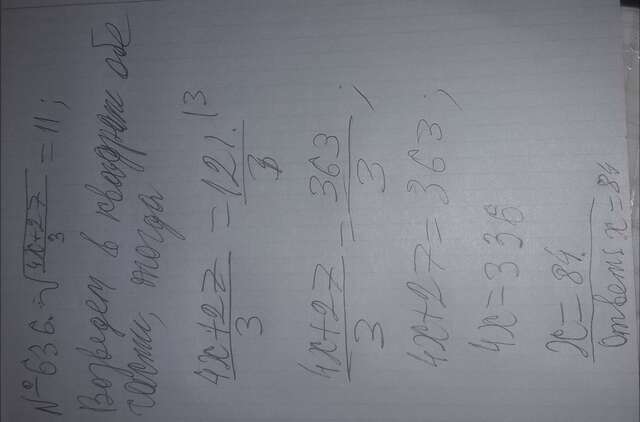 №636. √(4x+27/3) = 11;
Возведем в квадрат обе
части, тогда
4x+27/3 = 121/3 |3
4x+27/3 = 363/3;
4x+27=363;
4x=336
x=84
Ответ: x=84